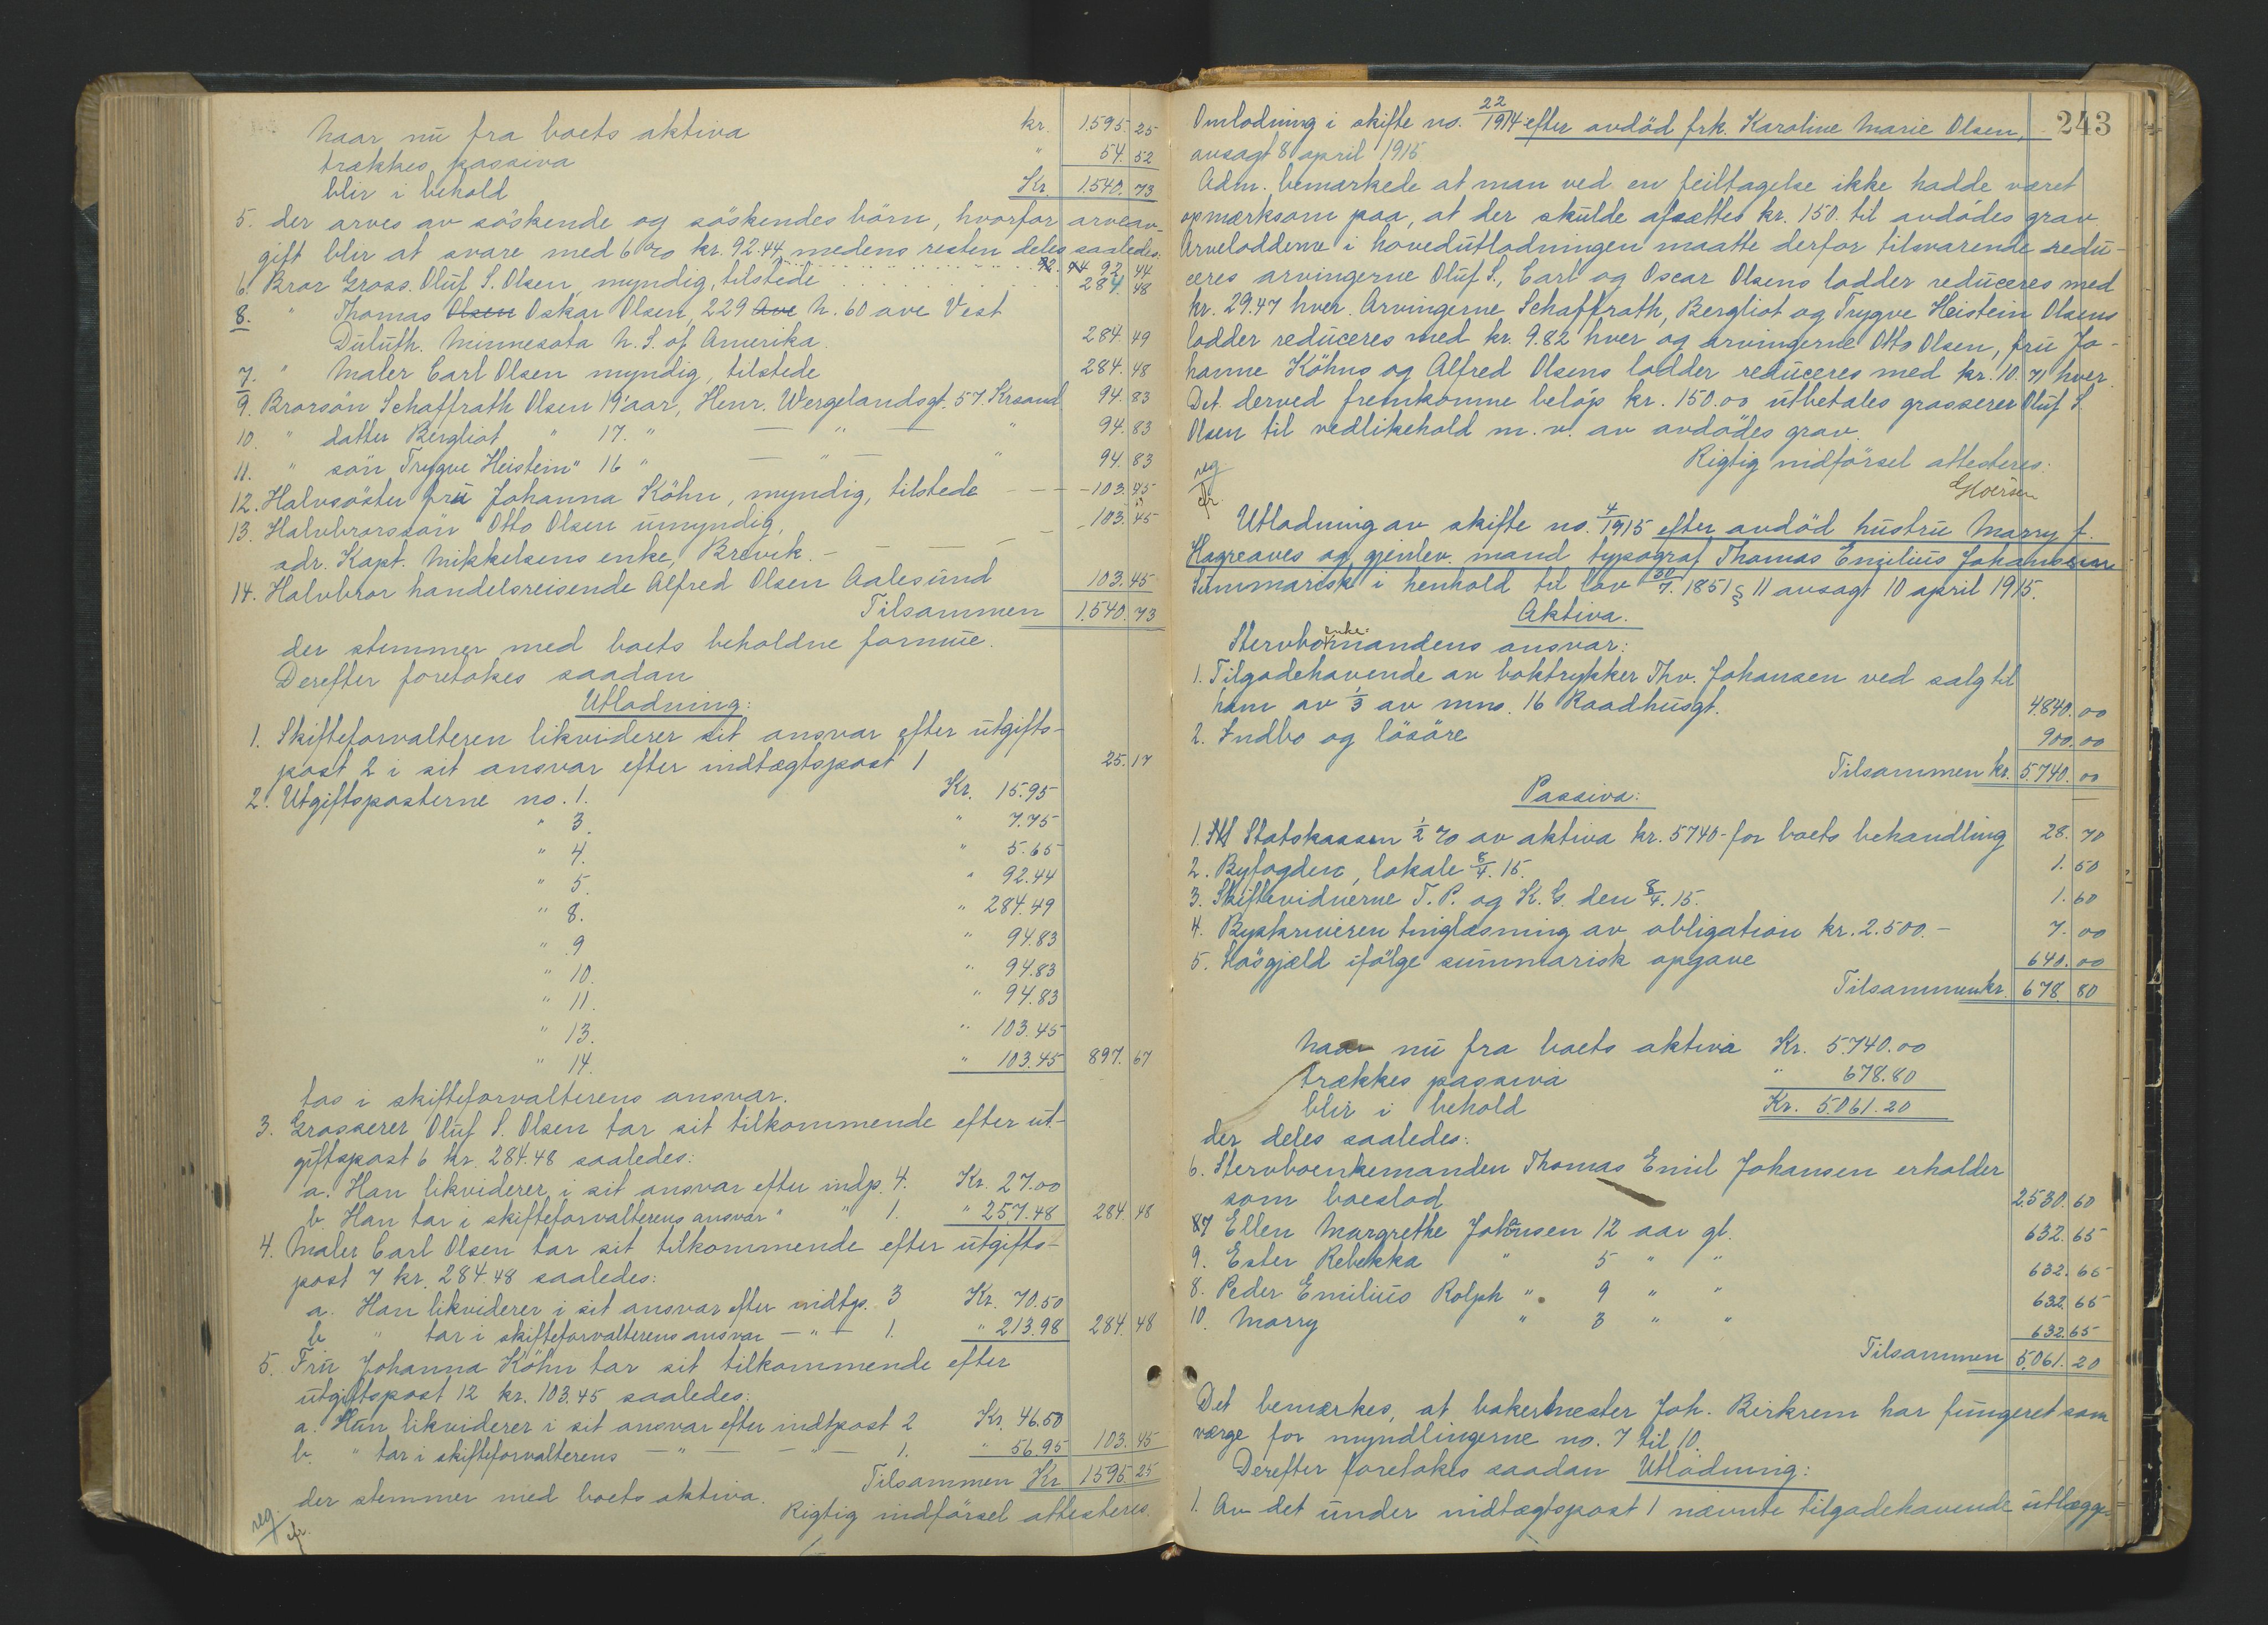 Naar nu fra boets aktiva kr. 1595.25
trækkes passiva " 54.52
blir i behold Kr. 1.540.73
5. der arves av söskende og söskendes börn, hvorfor arveav-
gift blir at svare med 6 % kr. 92.44, medens resten deles saaledes:
92.44
6. Bror Gross. Oluf S. Olsen, myndig, tilstede 284.48
8. " Thomas Olsen Oskar Olsen, 229 Ave N. 60 ave Vest
Duluth. Minnesota N. S. of Amerika. 284.49
7. " Maler Carl Olsen myndig, tilstede 284.48
9. Brorsön Schaffrath Olsen 19 aar, Henr. Wergelandsgt. 57. Krsand 94.83
10. " datter Bergliot " 17. " — " — " 94.83
11. " sön Trygve Heistein " 16 " — " — " 94.83
12. Halvsöster fru Johanna Köhn, myndig, tilstede - - - 103.45
13. Halvbrorssön Otto Olsen umyndig, 103.45
adr. Kapt. Mikkelsens enke, Brevik. -
14. Halvbror handelsreisende Alfred Olsen Aalesund 103.45
Tilsammen 1.540.73
der stemmer med boets beholdne formue.
Derefter foretokes saadan
Utlodning:
1. Skifteforvalteren likviderer sit ansvar efter utgifts-
post 2 i sit ansvar efter indtægtspost 1 25.17
2. Utgiftsposterne no. 1. Kr. 15.95
" 3. " 7.75
" 4. " 5.65
" 5. " 92.44
" 8. " 284.49
" 9 " 94.83
" 10. " 94.83
" 11. " 94.83
" 13. " 103.45
" 14. " 103.45 897.67
tas i skifteforvalterens ansvar.
3. Grosserer Oluf S. Olsen tar sit tilkommende efter ut-
giftspost 6 kr. 284.48 saaledes:
a. Han likviderer i sit ansvar efter indp. 4. Kr. 27.00
b. Han tar i skifteforvalterens ansvar " " 1. " 257.48 284.48
4. Maler Carl Olsen tar sit tilkommende efter utgifts-
post 7 kr. 284.48 saaledes:
a. Han likviderer i sit ansvar efter indtp. 3 Kr. 70.50
b " tar i skifteforvalterens ansvar — " — 1. " 213.98 284.48
5. Fru Johanna Köhn tar sit tilkommende efter
utgiftspost 12 kr. 103.45 saaledes:
a. Hun likviderer i sit ansvar efter indtpost 2 Kr. 46.50
b. " tar i skifteforvalterens — " — — " — 1. " 56.95 103.45
Tilsammen Kr 1595.25
der stemmer med boets aktiva.
Rigtig indförsel attesteres.
reg
243
Omlodning i skifte no. 22/1914 efter avdöd frk. Karoline Marie Olsen,
avsagt 8 april 1915
Adm. bemærkede at man ved en feiltagelse ikke hadde været
opmærksom paa, at der skulde afsættes kr. 150. til avdödes grav.
Arvelodderne i hovedutlodningen maatte derfor tilsvarende redu-
ceres arvingerne Oluf S., Carl og Oscar Olsens lodder reduceres med
kr. 29.47 hver. Arvingerne Schaffrath, Bergliot og Trygve Heistein Olsens
lodder reduceres med kr. 9.82 hver og arvingerne Otto Olsen, fru Jo-
hanne Köhns og Alfred Olsens lodder reduceres med kr. 10.71 hver.
Det derved fremkomne belöp kr. 150.00 utbetales grosserer Oluf S.
Olsen til vedlikehold m. v. av avdödes grav.
Rigtig indförsel attesteres:
reg
Utlodning av skifte no. 4/1915 efter avdöd hustru Marry f.
Hagreaves og gjenlev. mand typograf Thomas Emilius Johansen
Summarisk i henhold til lov 30/7. 1851 § 11 avsagt 10 april 1915.
Aktiva.
Stervboenkemandens ansvar:
1. Tilgodehavende av boktrykker Thv. Johansen ved salg til
ham av 1/3 av mno. 16 Raadhusgt. 4.840.00
2. Indbo og lösöre 900.00
Tilsammen kr. 5.740.00
Passiva:
1. Statskassen 1/2 % av aktiva kr. 5740- for boets behandling 28.70
2. Byfogden, lokale 8/4. 15. 1.50
3. Skiftevidnerne T. P. og K. G. den 8/4. 15. 1.60
4. Byskriveren tinglæsning av obligation kr. 2.500.- 7.00
5. Lösgjæld ifölge summarisk opgave 640.00
Tilsammen kr. 678.80
Naar nu fra boets aktiva Kr. 5.740.00
trækkes passiva " 678.80
blir i behold Kr. 5.061.20
der deles saaledes:
6. Stervboenkemanden Thomas Emil Johansen erholder
som boeslod 2.530.60
7 Ellen Margrethe Johansen 12 aar gl. 632.65
9. Ester Rebekka " 5 " " 632.65
8. Peder Emilius Rolph " 9 " " 632.65
10. Marry " 3 " " 632.65
Tilsammen 5.061.20
Det bemærkes, at bakermester Joh. Birkrem har fungeret som
værge for myndlingerne no. 7 til 10.
Derefter foretokes saadan Utlodning:
1. Av det under indtægtspost 1 nævnte tilgodehavende utlægges